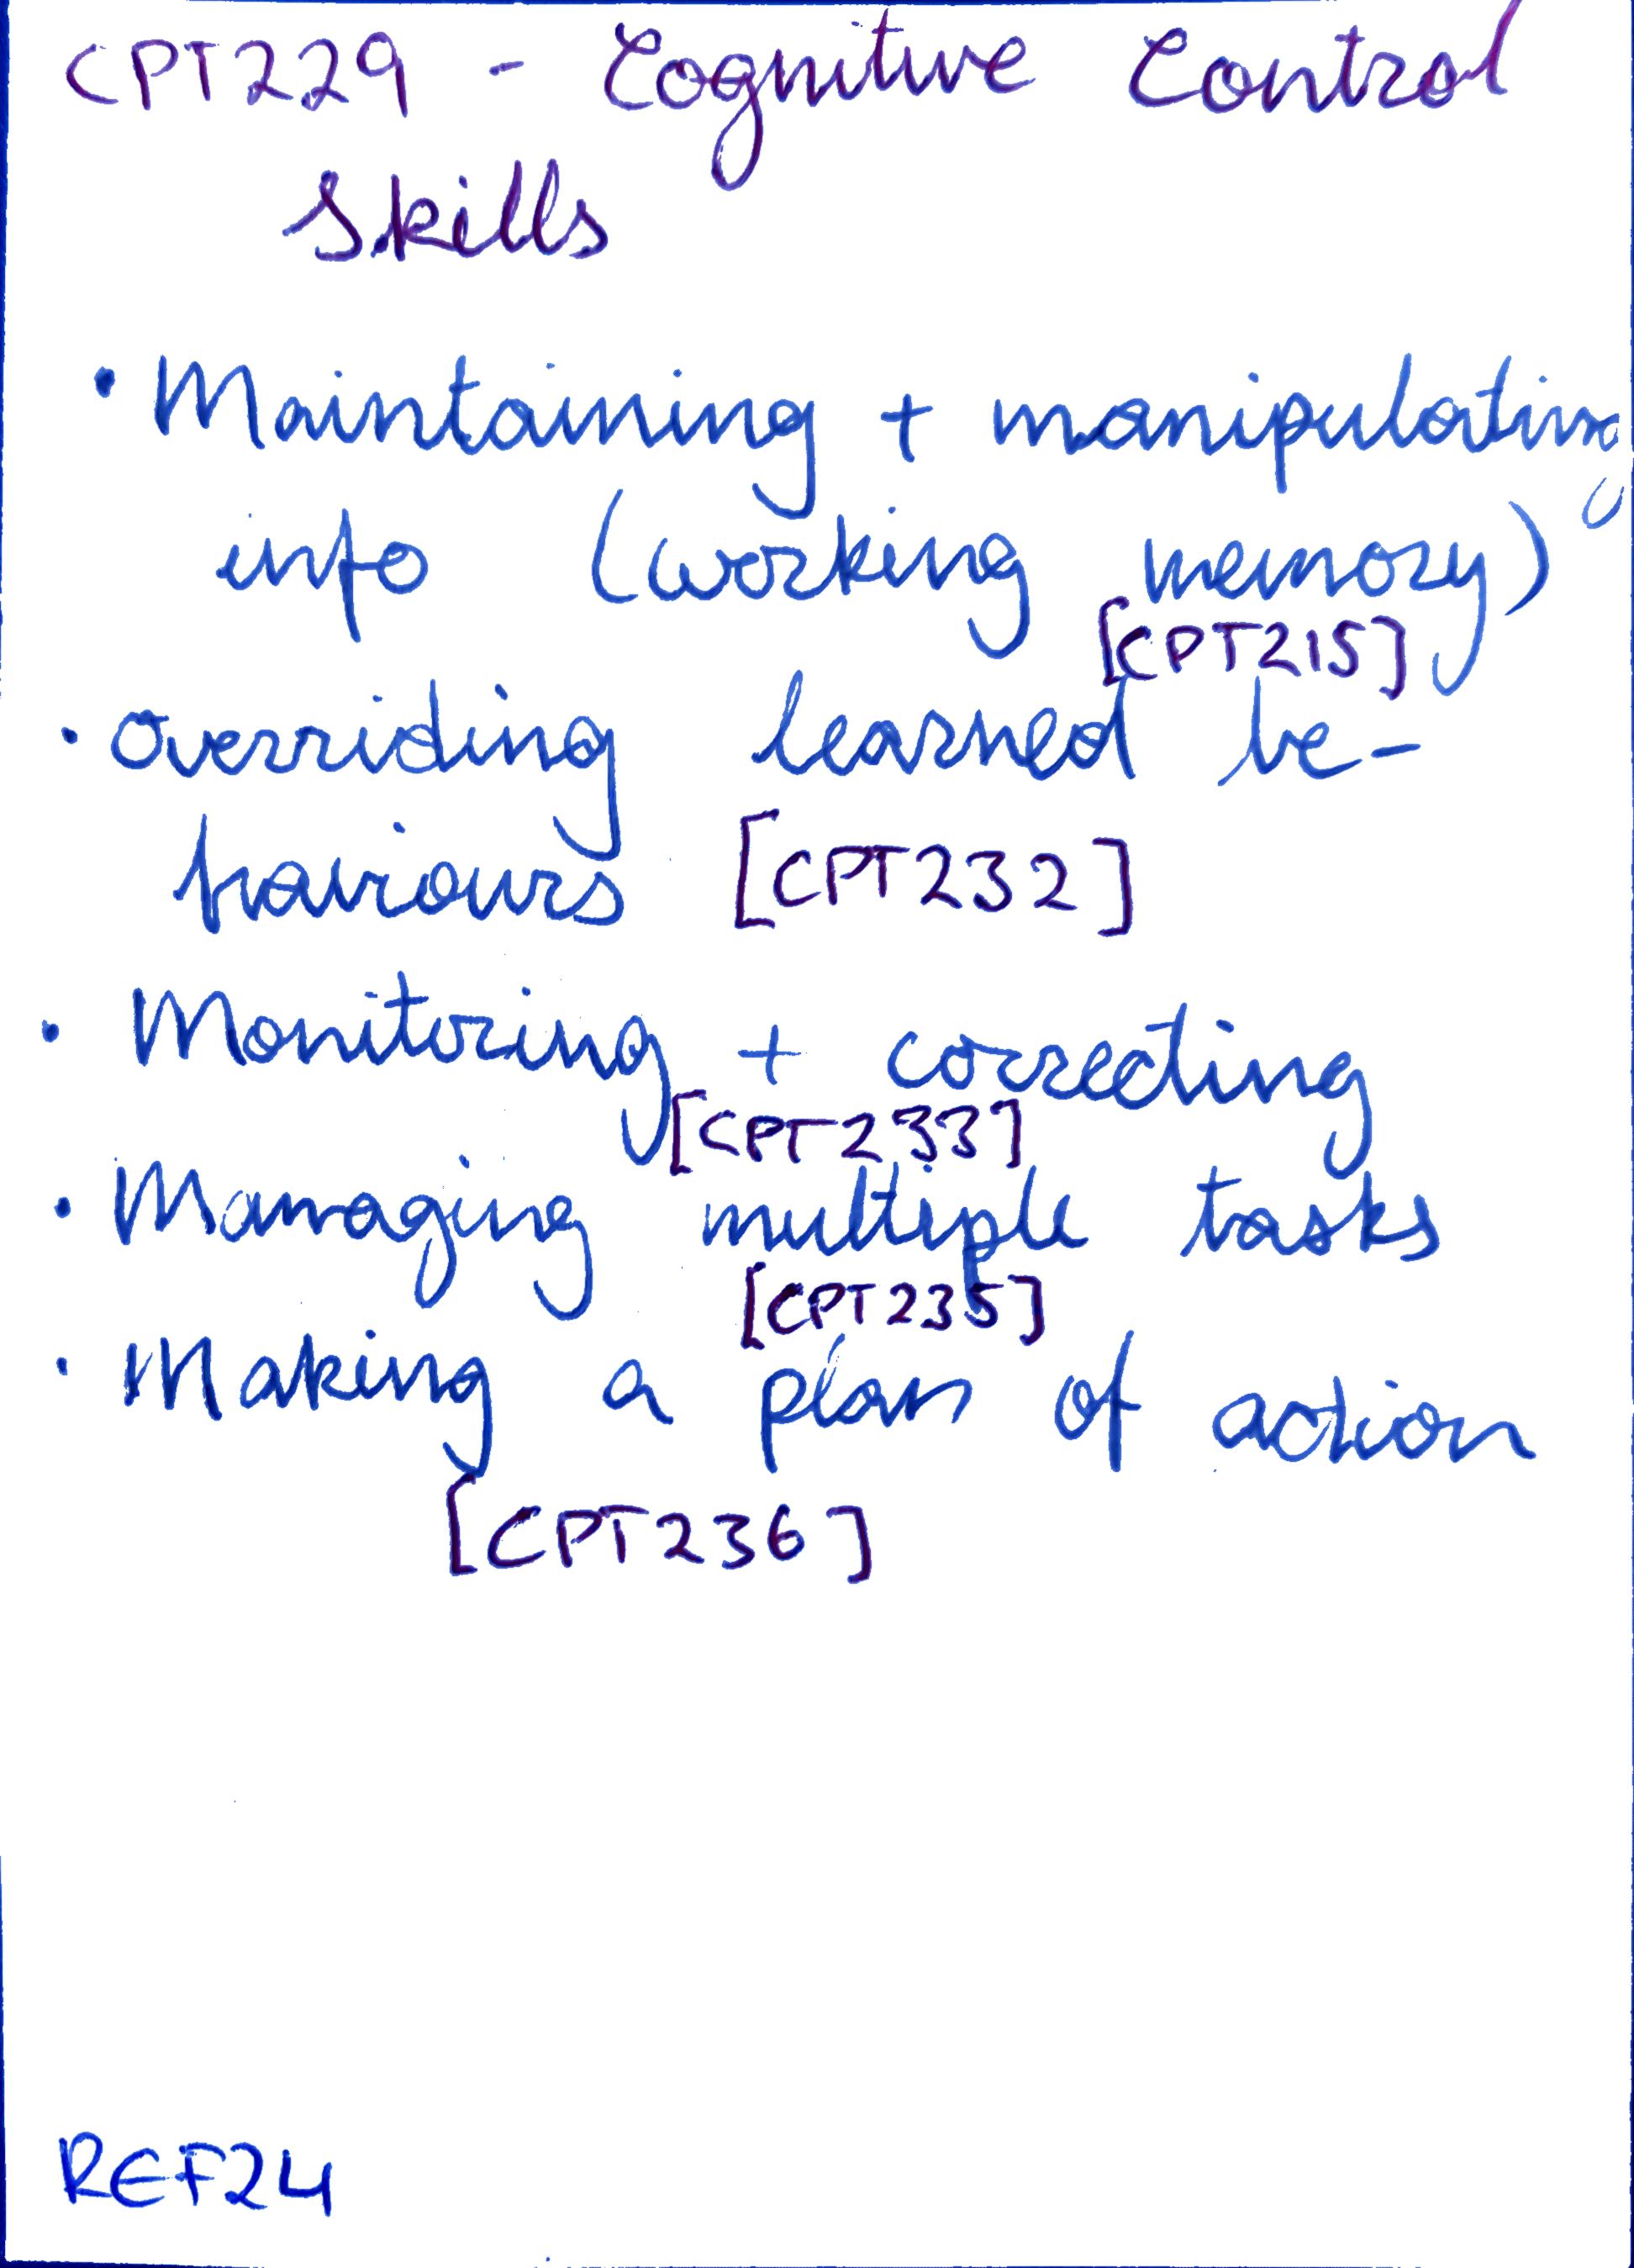 CPT229 - Cognitive Control
Skills
• Maintaining + manipulating
info (working memory)
[CPT215]
• Overriding learned be-
haviours [CPT232]
• Monitoring + correcting
[CPT233]
• Managing multiple tasks
[CPT235]
• Making a plan of action
[CPT236]
REF24